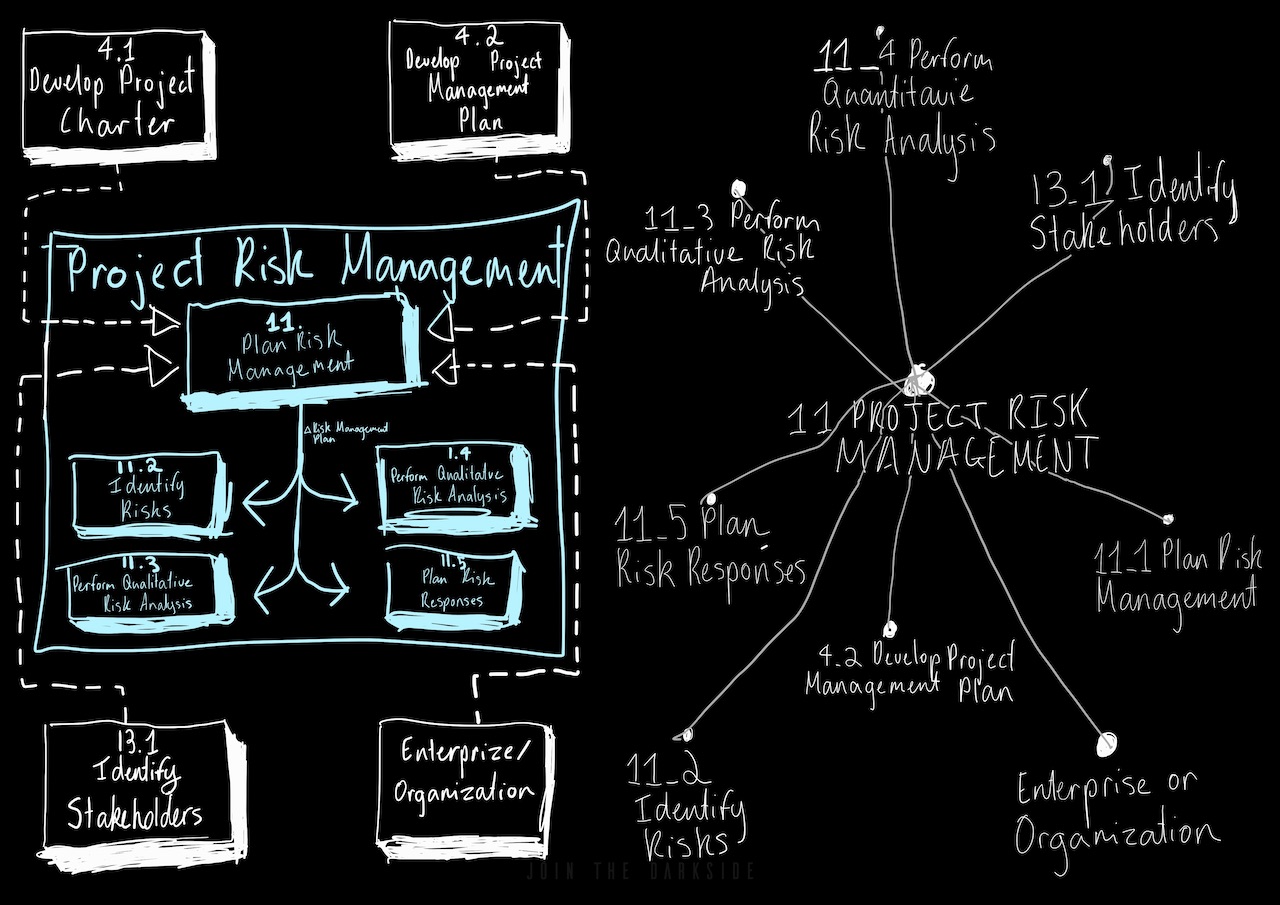 4.1
Develop Project
Charter
4.2
Develop Project
Management
Plan
Project Risk Management
11.
Plan Risk
Management
△ Risk Management
Plan
11.2
Identify
Risks
1.4
Perform Qualitatve
Risk Analysis
11.3
Perform Qualitative
Risk Analysis
11.5
Plan Risk
Responses
13.1
Identify
Stakeholders
Enterprize/
Organization
11_4 Perform
Quantitavie
Risk Analysis
13_1 Identify
Stakeholders
11_3 Perform
Qualitative Risk
Analysis
11 PROJECT RISK
MANAGEMENT
11_5 Plan
Risk Responses
11_1 Plan Risk
Management
4_2 Develop Project
Management Plan
11_2
Identify
Risks
Enterprise or
Organization
JOIN THE DARKSIDE